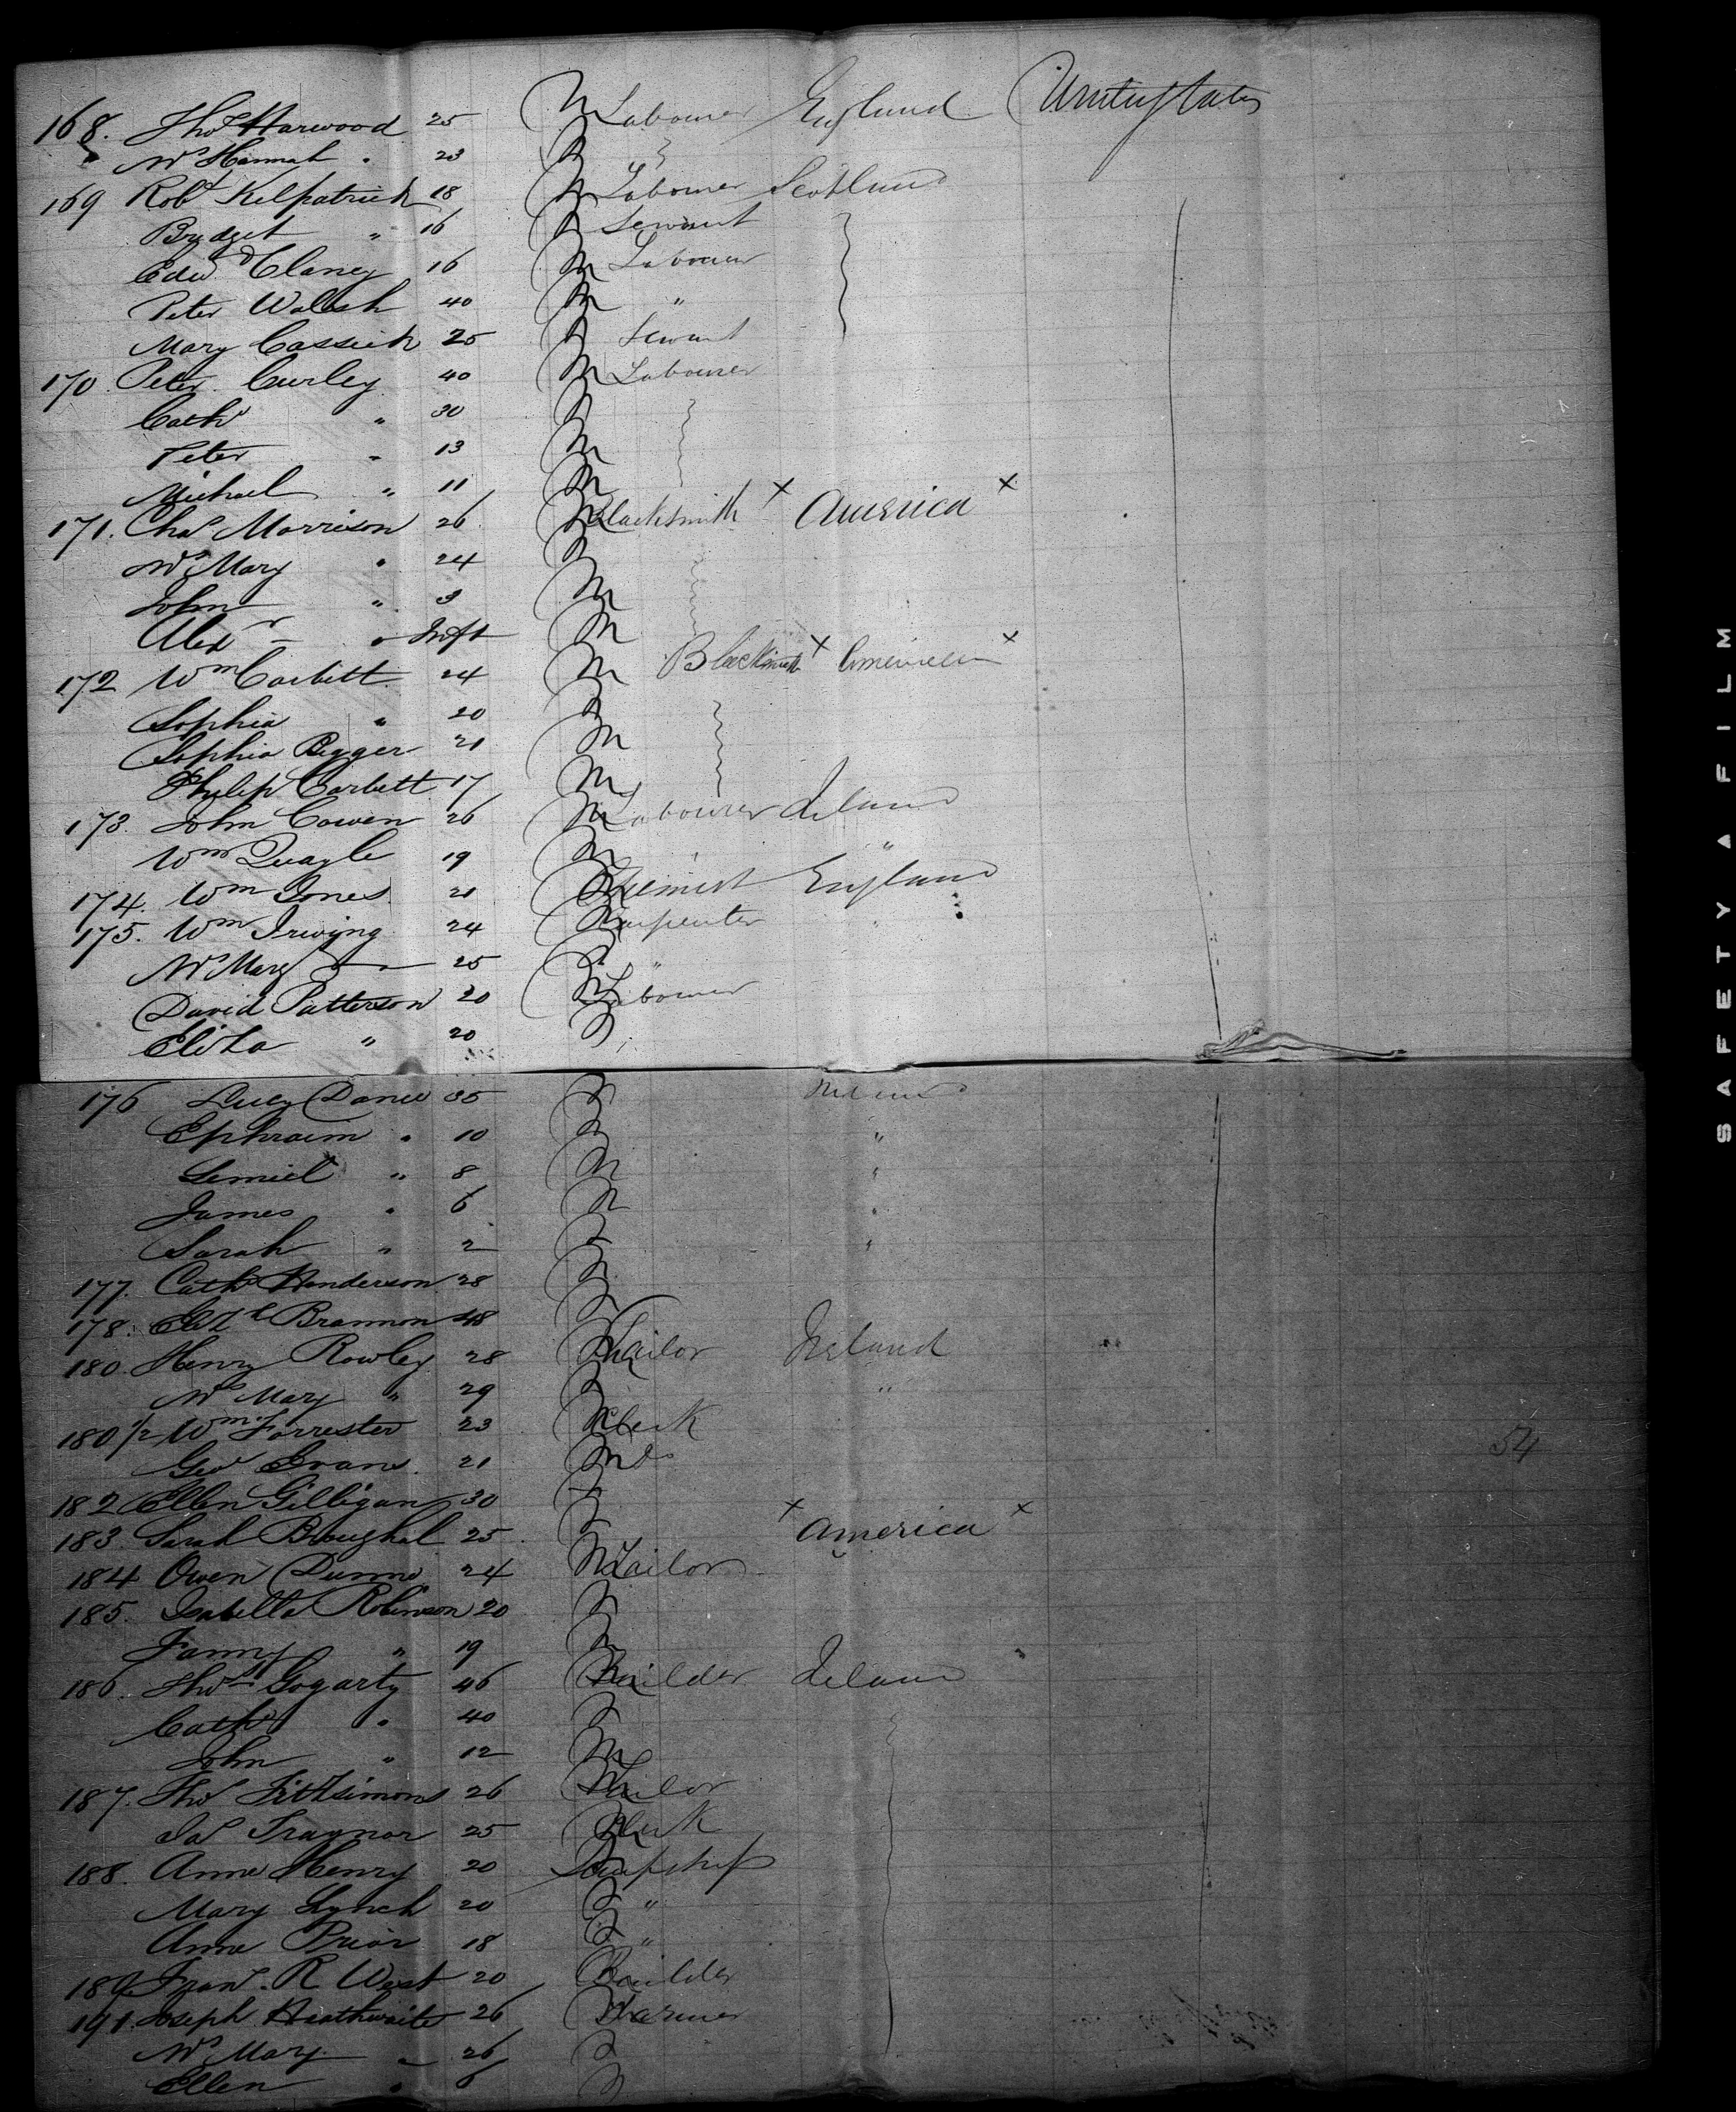 168. Thos Harwood 25 M Labourer England United States
Ws Hannah " 23
169 Robt Kilpatrick 18 M Labourer Scotland
Bridget " 16 Servant
Edwd Clancy 16 M Labourer
Peter Walsh 40 M "
Mary Cassick 25 Servant
170 Peter Curley 40 M Labourer
Cath " 30
Peter " 13 M
Michael " 11 M
171. Chas Morrison 26 Blacksmith x America x
Ws Mary " 24
John " 3 M
Alexr " Inft M
172 Wm Corbett 24 M Blacksmith x American x
Sophia " 20
Sophia Bigger 21 M
Philip Corbett 17 M
173. John Cowen 26 M Labourer Ireland
Wm Quayle 19 M "
174. Wm Jones 21 Chemist England
175. Wm Irwing 24 Carpenter "
Ws Mary " 25 "
David Patterson 20 Labourer
Eliza " 20
176 Lucy 35 Ireland
Ephraim " 10 "
Lemiel " 8 M "
James " 6 "
Sarah " 2 "
177. Cath Henderson 28
178. Elizth Brannon 48
180. Henry Rowley 28 Tailor Ireland
Ws Mary " 29 "
180 1/2 Wm Forrester 23 Clerk
Geo Evans 21 M Do
182 Ellen Gilligan 30
183. Sarah Broughal 25 x America x
184 Owen Dunne 24 M Tailor
185. Isabella Robinson 20
Fanny " 19
186. Thos Gogarty 46 Builder Ireland
Cath " 40
John " 12 M
187. Thos Fitzsimons 26 Tailor
Jas Traynor 25 Clerk
188. Anne Henry 20
Mary Lynch 20 "
Anne Prior 18 "
189 Frans. R West 20 Builder
191. Joseph Heathwaite 26 Farmer
Ws Mary " 26
Ellen " 6
54
SAFETY A FILM